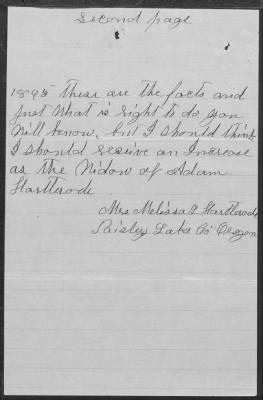 Second page
1895 these are the facts and
just what is right to do you
will know, but I should think
I should receive an Increase
as the Widow of Adam
Hartterode
Mrs Melissa I Hartterode
Paisley Lake Co Oregon